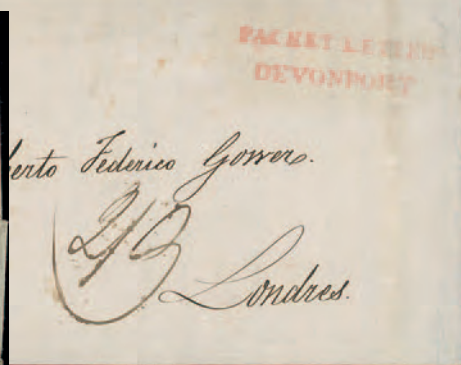 PACKET LETTER
DEVONPORT
erto Federico Gower.
2/3
Londres.